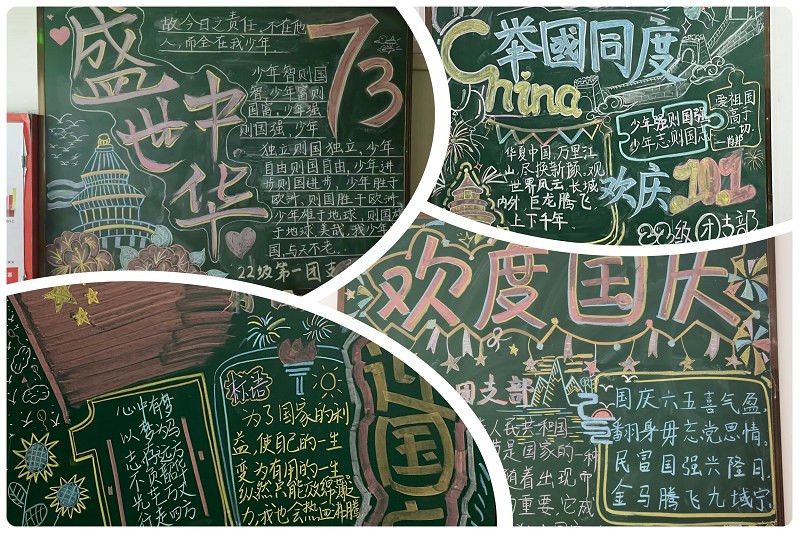 盛世中华
73
故今日之责任,不在他
人,而全在我少年。
少年智则国
智,少年富则
国富,少年强
则国强,少年
独立则国独立,少年
自由则国自由,少年进
步则国进步,少年胜于
欧洲,则国胜于欧洲,
少年雄于地球,则国雄
于地球。美哉,我少年中
国,与天不老
22级第一团支
China
举國同度
少年强则国强
少年志则国志
爱祖国
高于
一切
华夏中国,万里江
山,尽换新颜,观
世界风云,长城
内外,巨龙腾飞,
上下千年。
欢庆
22级 团支部
心中有梦
以梦为马
标语
为了国家的利
益,使自己的一生
变为有用的一生
纵然只能效绵薄
力,我也会热血沸腾
迎国
欢度国庆
团支部
人民共和国
是国家的一种
随着出现
重要,它成
国庆六五喜气盈,
翻身毋忘党恩情,
民富国强兴隆日,
金马腾飞九域宁